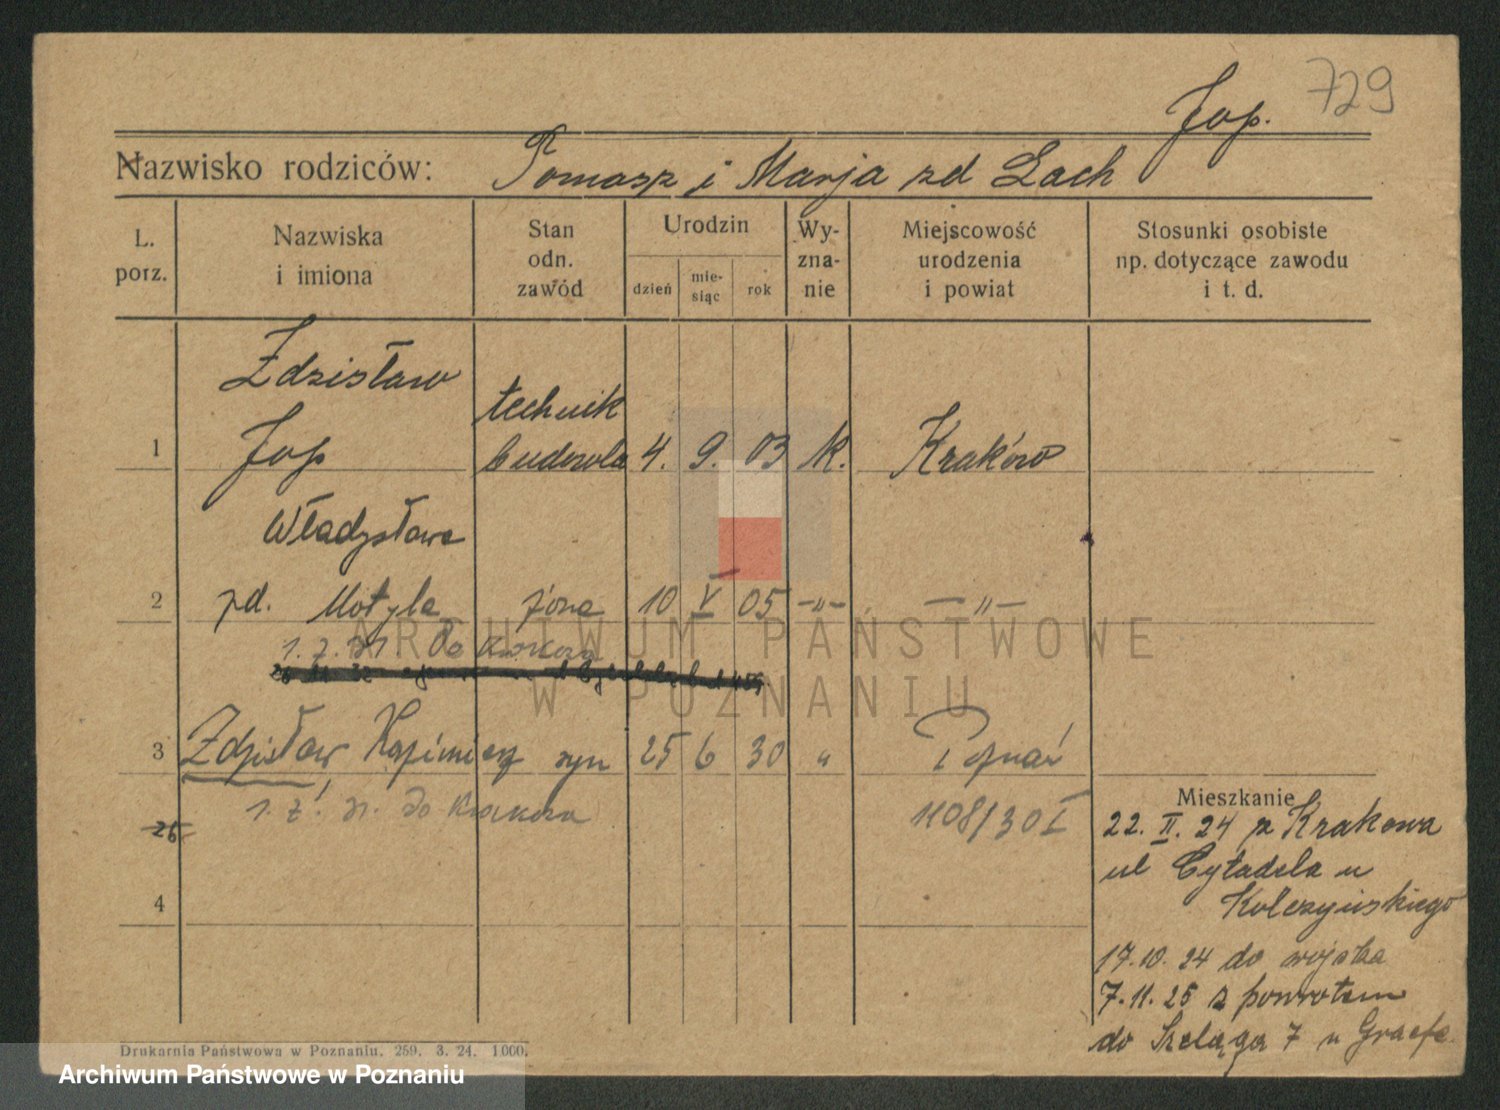 729
Jop.
Nazwisko rodziców: Tomasz i Marja zd Lach
L. porz.
Nazwiska i imiona
Stan odn. zawód
Urodzin
dzień
mie-
siąc
rok
Wy-
zna-
nie
Miejscowość urodzenia i powiat
Stosunki osobiste np. dotyczące zawodu i t. d.
Zdzisław
technik
1 Jop budowla 4. 9. 03 k. Kraków
Władysława
2 zd. Motyla żona 10 V 05 -„- -„-
do Krakowa
3 Zdzisław Kazimierz syn 25 6 30 „ Poznań
do Krakowa 1108/30 I
26
4
Mieszkanie
22. II. 24 z Krakowa
ul Cytadela u
Kolczyńskiego
17.10. 24 do wojska
7.11. 25 z powrotem
do Szeląga 7 u Graefe
Drukarnia Państwowa w Poznaniu. 259. 3. 24. 1000.
ARCHIWUM PAŃSTWOWE
W POZNANIU
Archiwum Państwowe w Poznaniu